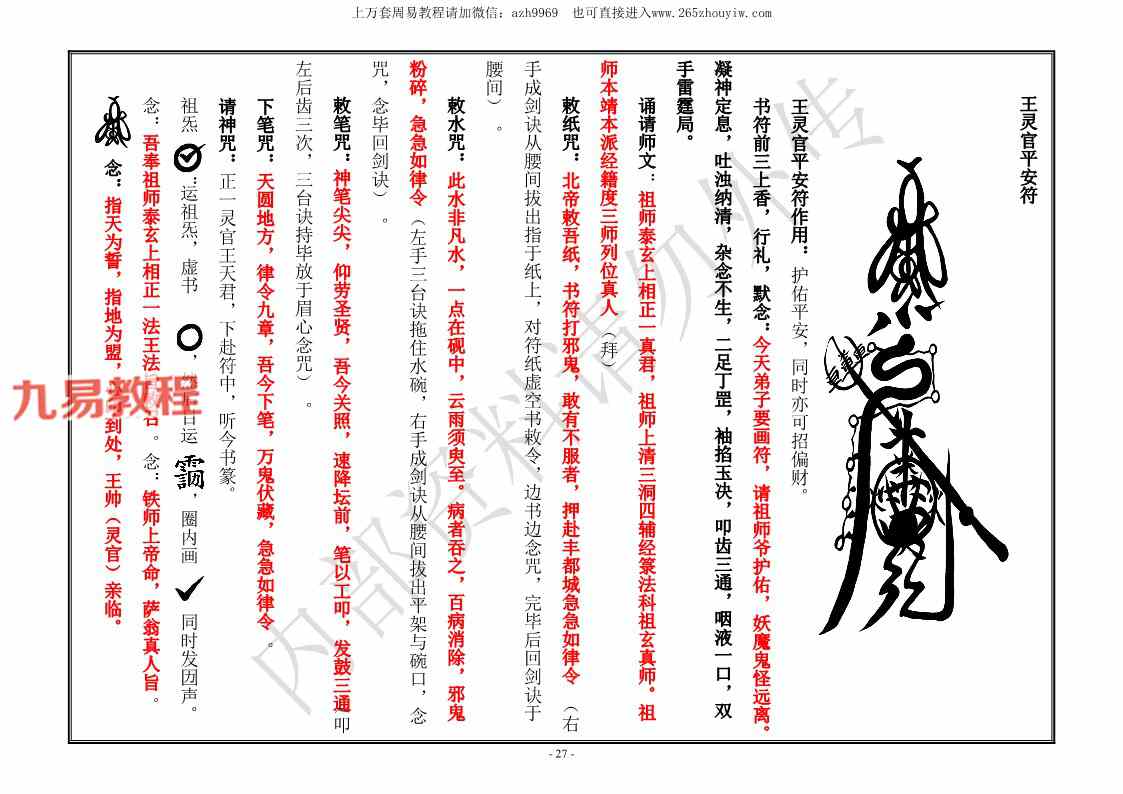 上万套周易教程请加微信：azh9969 也可直接进入www.265zhouyiw.com
王灵官平安符
王灵官平安符作用：护佑平安，同时亦可招偏财。
书符前三上香，行礼，默念：今天弟子要画符，请祖师爷护佑，妖魔鬼怪远离。
凝神定息，吐浊纳清，杂念不生，二足丁罡，袖掐玉决，叩齿三通，咽液一口，双
手雷霆局。
诵请师文：祖师泰玄上相正一真君，祖师上清三洞四辅经箓法科祖玄真师。祖
师本靖本派经籍度三师列位真人（拜）
敕纸咒：北帝敕吾纸，书符打邪鬼，敢有不服者，押赴丰都城急急如律令（右
手成剑诀从腰间拔出指于纸上，对符纸虚空书敕令，边书边念咒，完毕后回剑诀于
腰间）。
敕水咒：此水非凡水，一点在砚中，云雨须臾至。病者吞之，百病消除，邪鬼
粉碎，急急如律令（左手三台诀拖住水碗，右手成剑诀从腰间拔出平架与碗口，念
咒，念毕回剑诀）。
敕笔咒：神笔尖尖，仰劳圣贤，吾今关照，速降坛前，笔以工叩，发鼓三通叩
左后齿三次，三台诀持毕放于眉心念咒）。
下笔咒：天圆地方，律令九章，吾今下笔，万鬼伏藏，急急如律令。
请神咒：正一灵官王天君，下赴符中，听今书篆。
祖炁：运祖炁，虚书，运，圈内画同时发㘞声。
念：吾奉祖师泰玄上相正一法王法召。念：铁师上帝命，萨翁真人旨。
念：指天为誓，指地为盟，到处，王帅（灵官）亲临。
九易教程
内部资料请勿外传
- 27 -